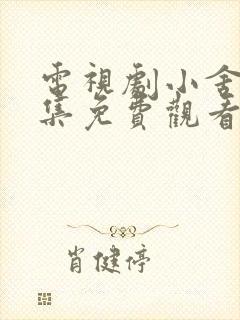 電視劇小舍
集免費觀看
肖健停